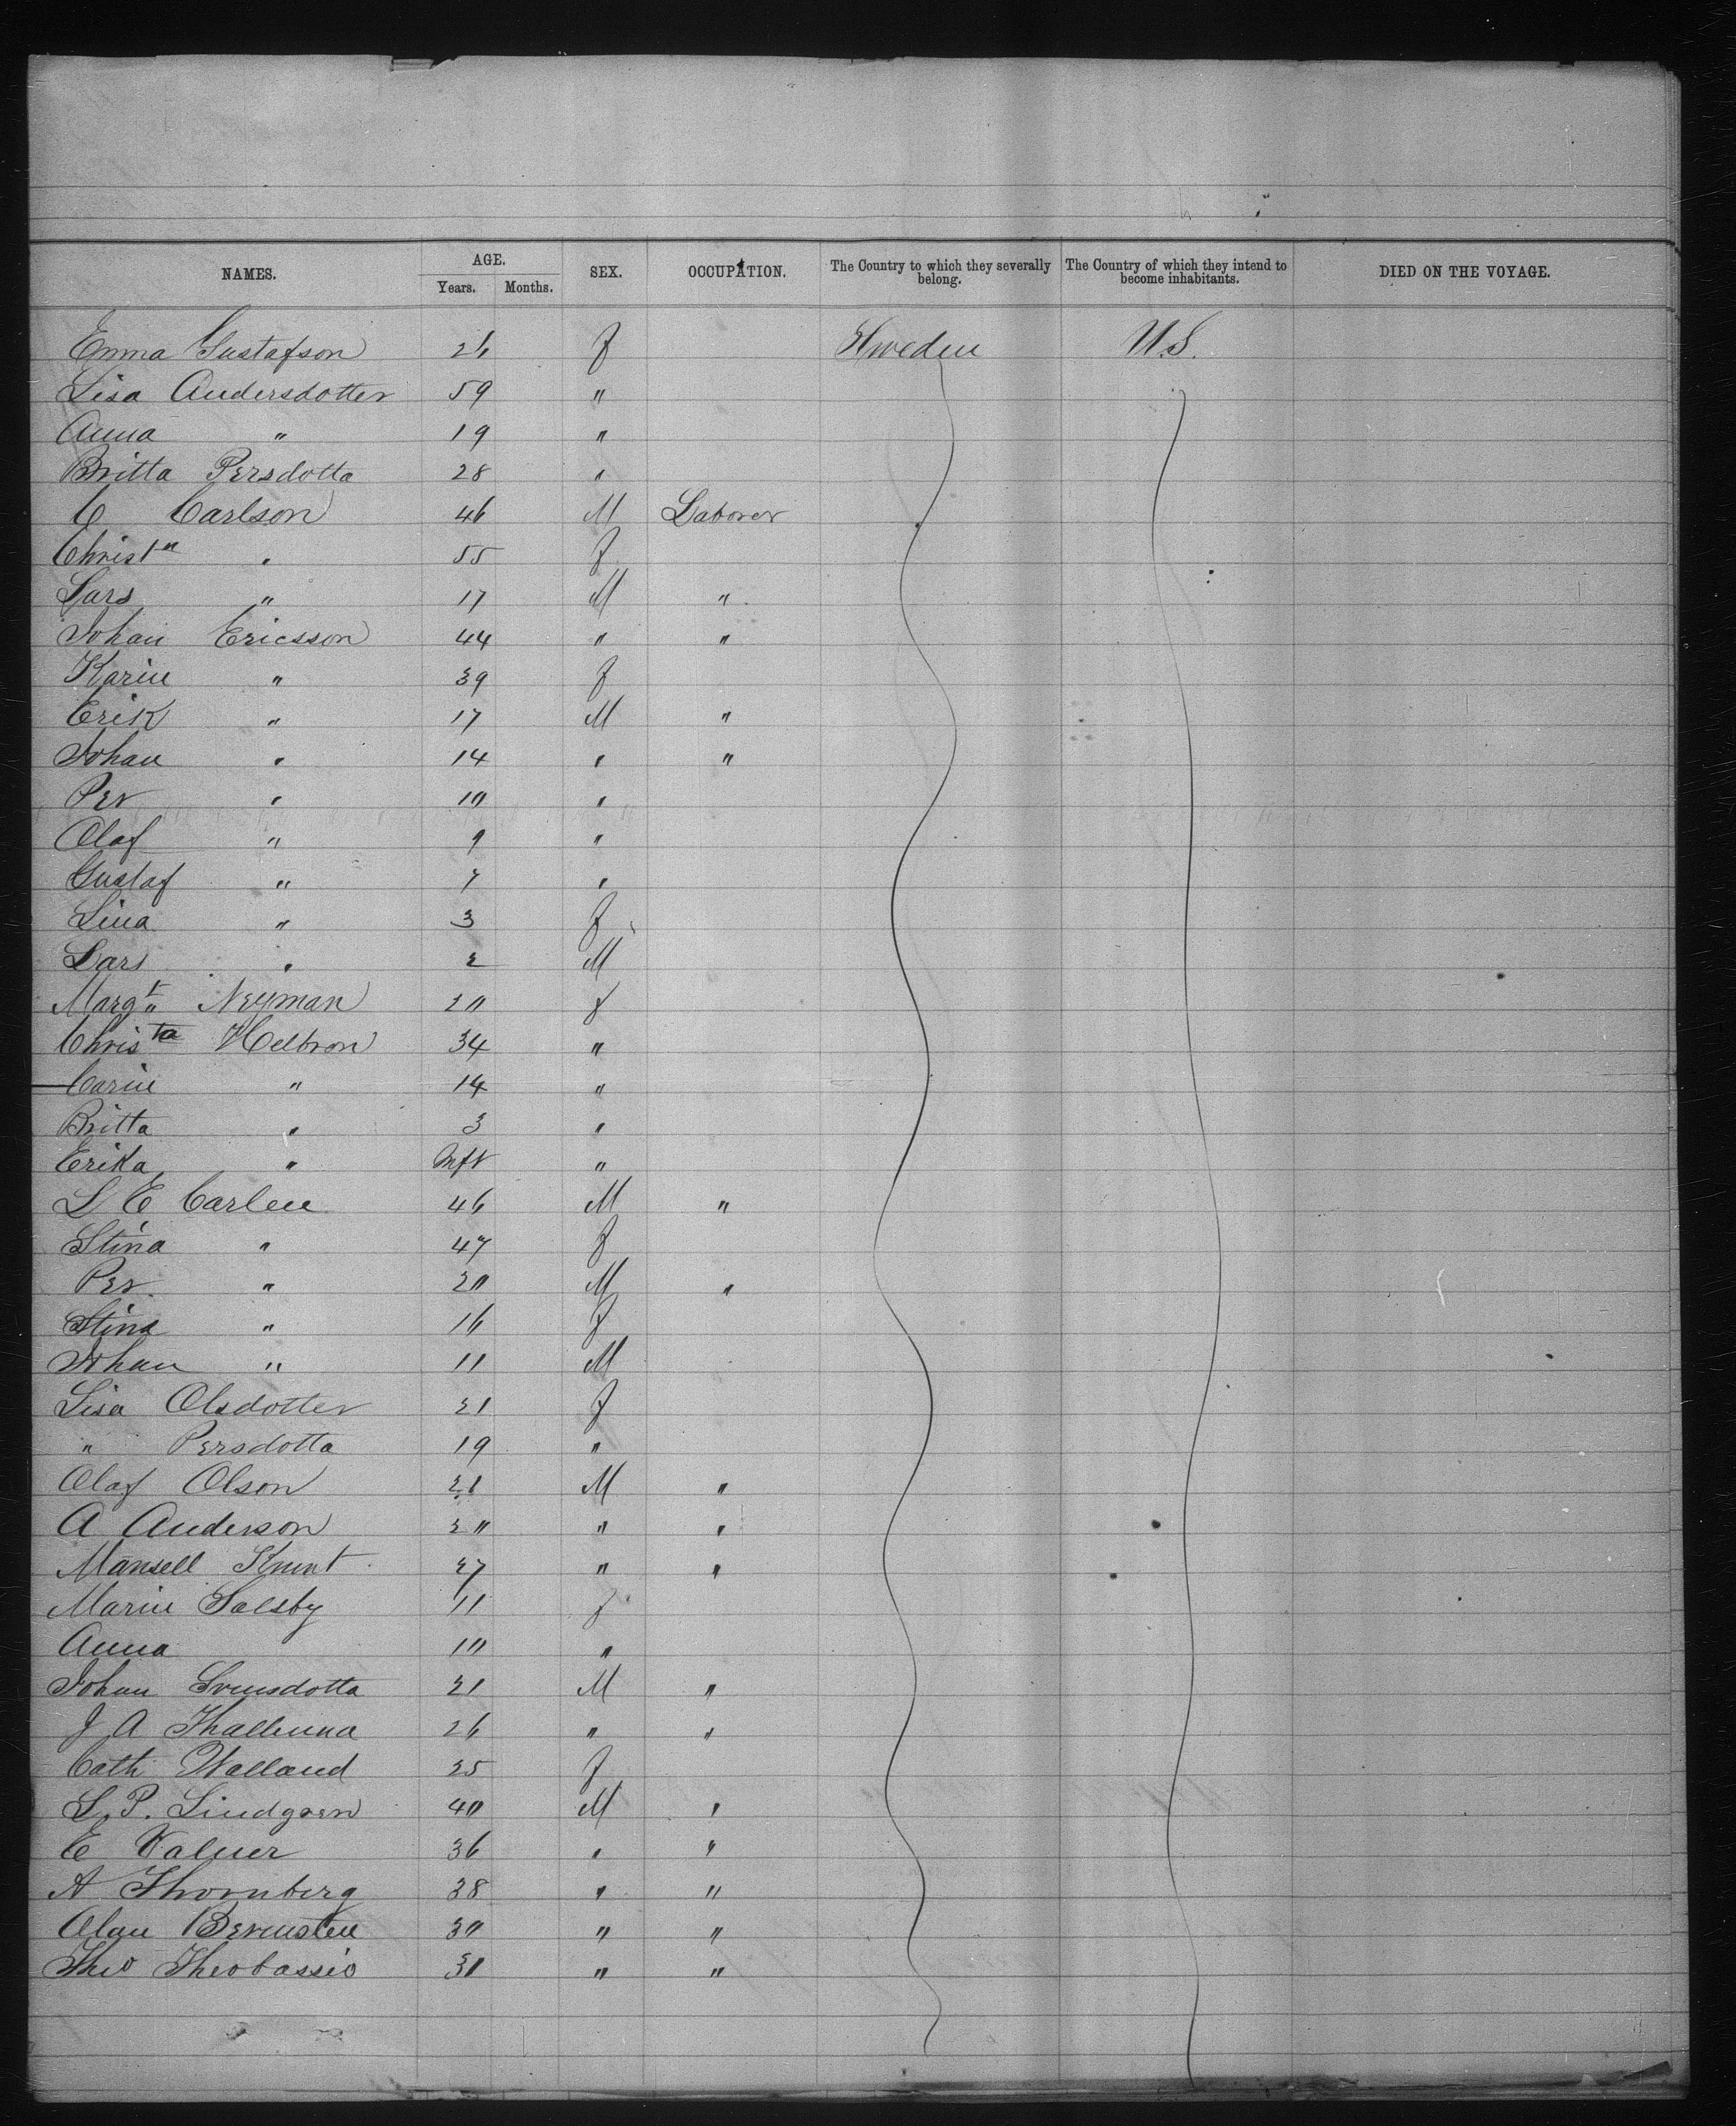 NAMES. AGE. SEX. OCCUPATION. The Country to which they severally belong. The Country of which they intend to become inhabitants. DIED ON THE VOYAGE.
Years. Months.
Emma Gustafson 26 f Sweden U.S.
Lisa Andersdotter 59 "
Anna " 19 "
Britta Persdotta 28 "
C Carlson 46 M Laborer
Christn " 55 f
Lars " 17 M "
Johan Ericsson 44 " "
Karin " 39 f
Erik " 17 M "
Johan " 14 " "
Per " 10 "
Olaf " 9 "
Gustaf " 7 "
Lina " 3 f
Lars " 2 M
Margt Neyman 20 f
Christa Helbron 34 "
Carin " 14 "
Britta " 3 "
Erika " Inft "
L E Carlen 46 M "
Stina " 47 f
Per " 20 M "
Stina " 16 f
Johan " 11 M
Lisa Olsdotter 21 f
" Persdotta 19 "
Olaf Olson 21 M "
A Anderson 20 " "
Mansell Knut 27 " "
Marin Salsby 11 f
Anna 10 "
Johan Svensdotta 21 M "
J A Thallenna 26 " "
Cath Walland 25 f
L. P. Lindgren 40 M "
E Valner 36 " "
A Thornberg 38 " "
Alan Bernsten 30 " "
Theo Theobassio 31 " "